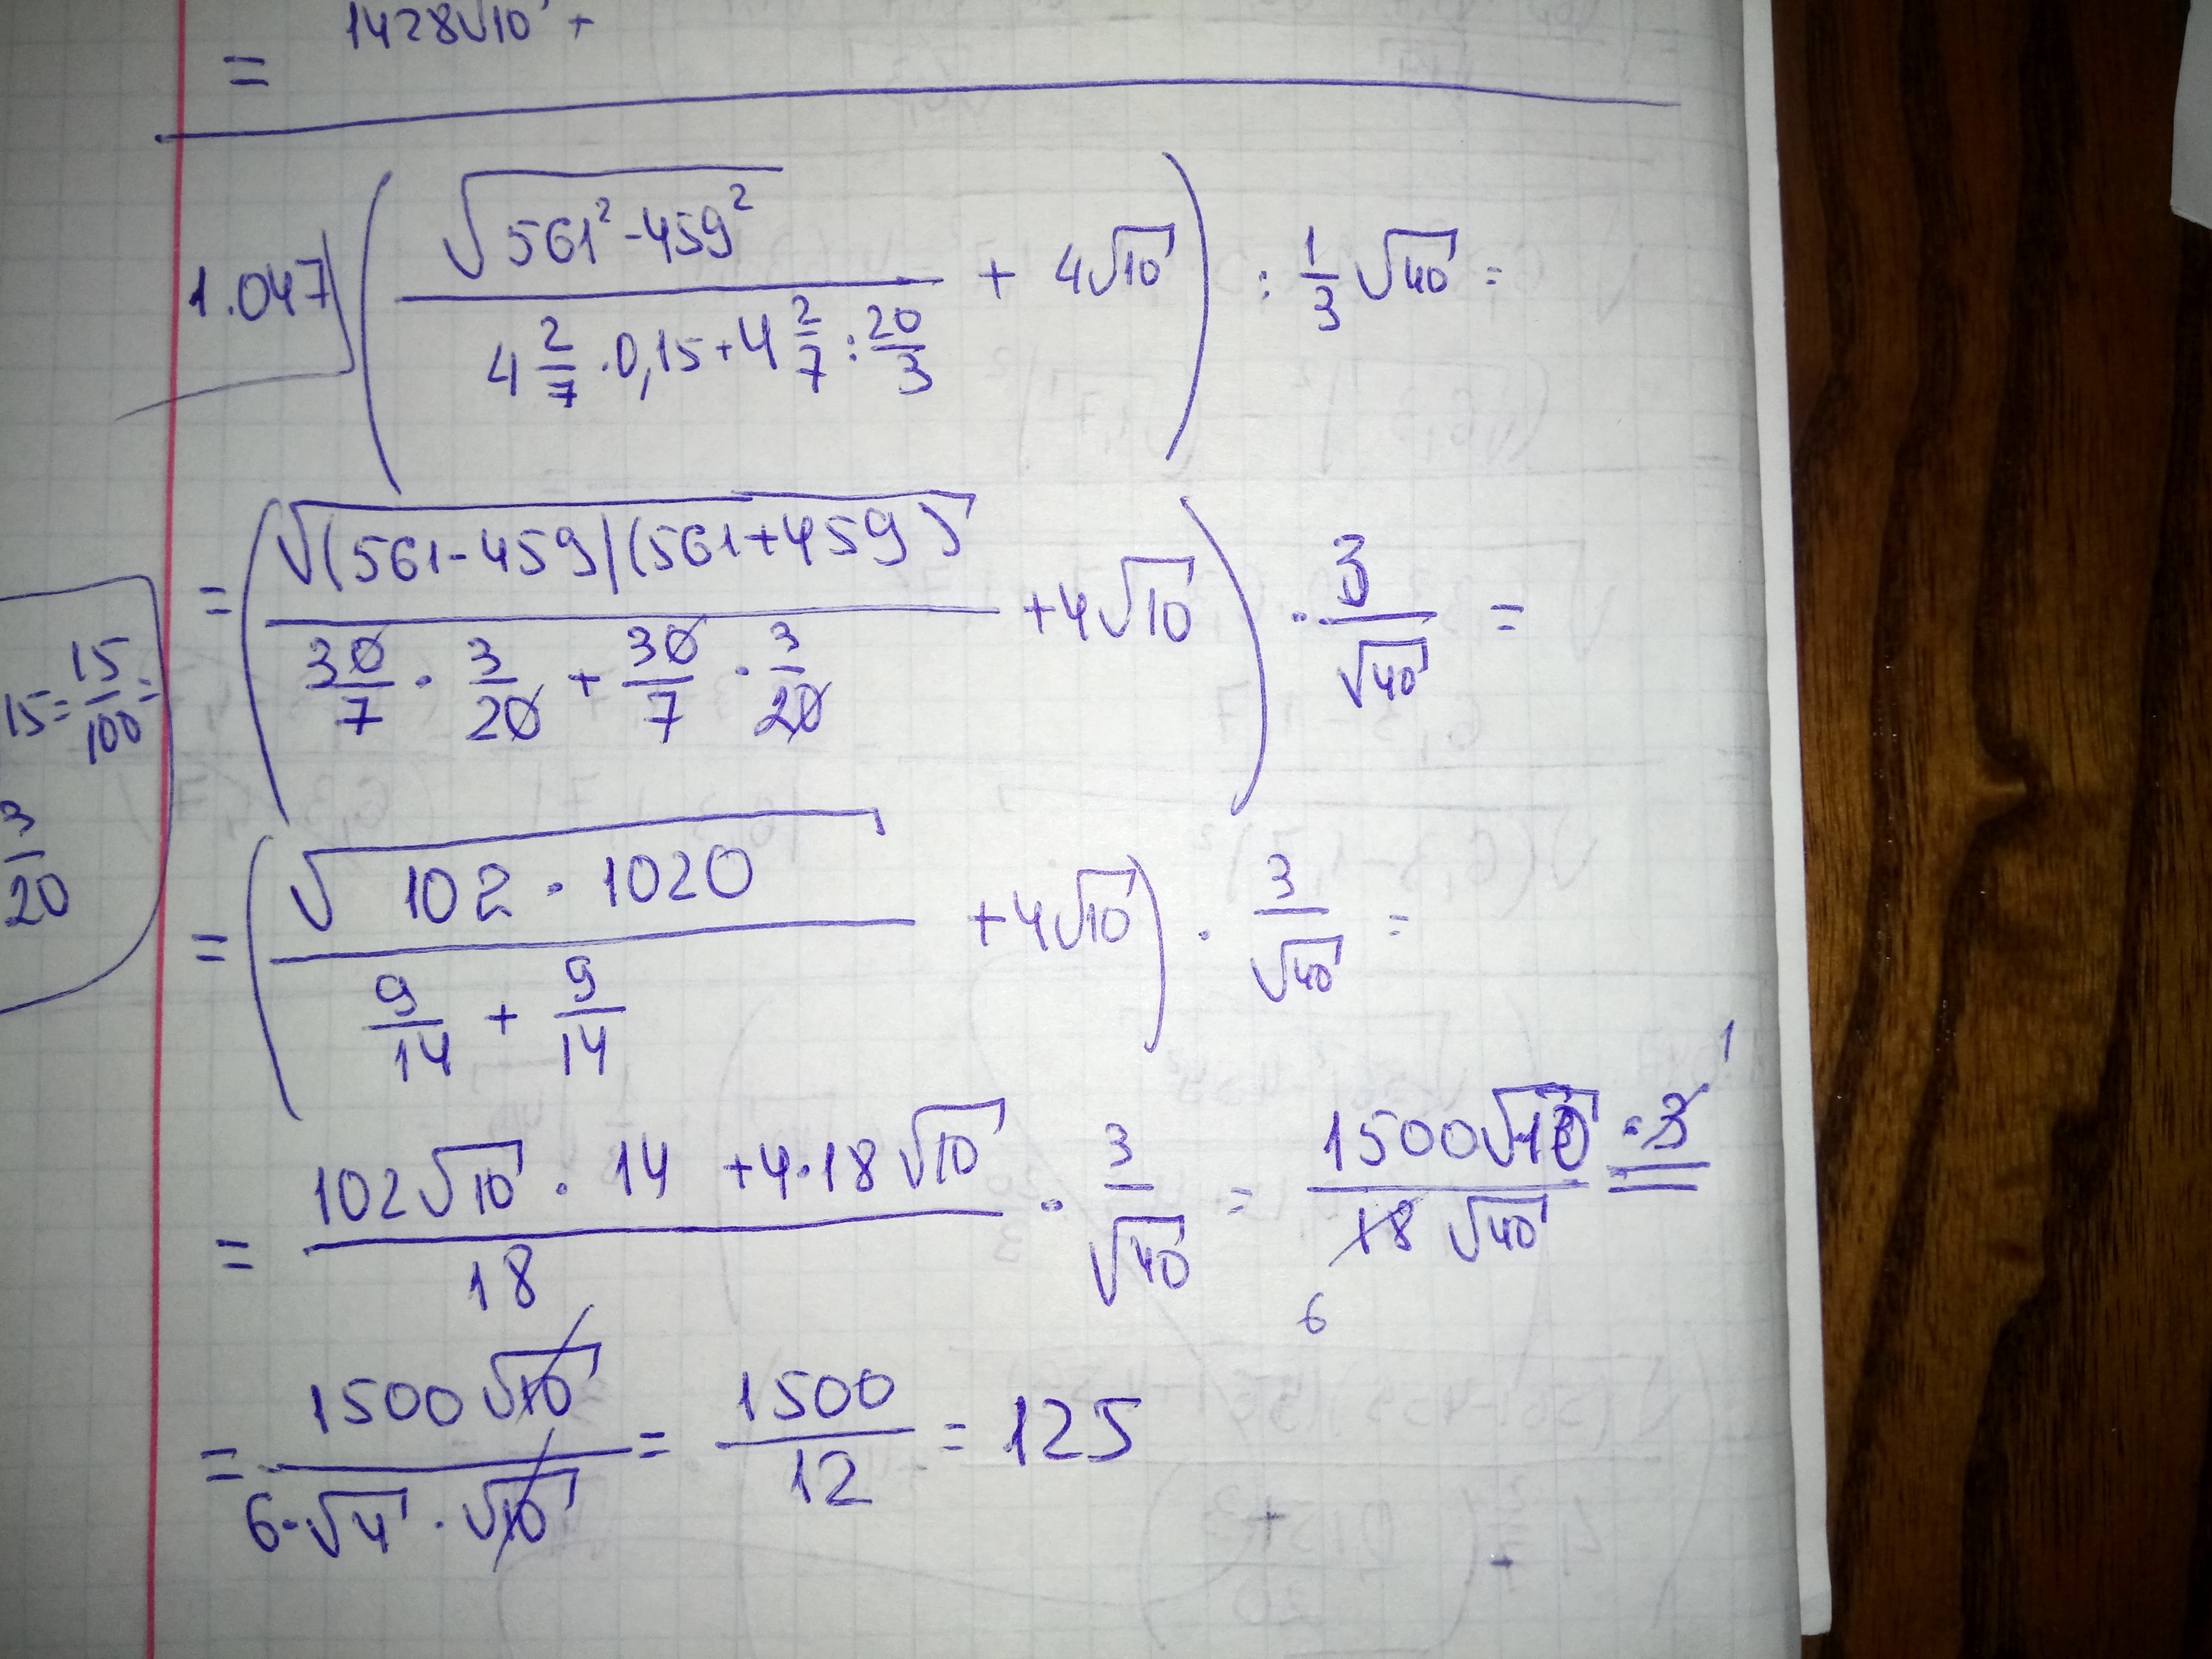 = 1428√10 +
1.047) ( √561² - 459² / 4 2/7 · 0,15 + 4 2/7 : 20/3 + 4√10 ) : 1/3 √40 =
= ( √(561-459)(561+459) / 30/7 · 3/20 + 30/7 · 3/20 + 4√10 ) · 3/√40 =
15 = 15/100 =
3/20
= ( √102 · 1020 / 9/14 + 9/14 + 4√10 ) · 3/√40 =
= 102√10 · 14 + 4·18√10 / 18 · 3/√40 = 1500√10 · 3 / 18√40
1
6
= 1500√10 / 6·√4 · √10 = 1500/12 = 125